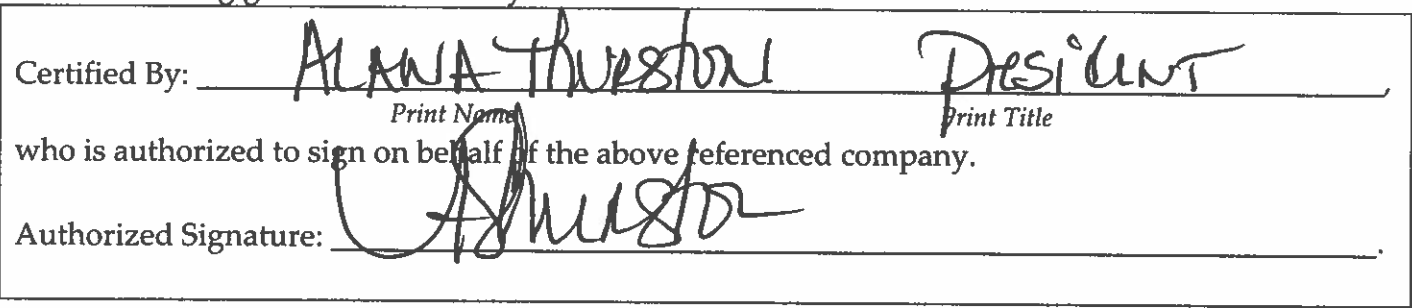 Certified By: ALANA Thurston President,
Print Name Print Title
who is authorized to sign on behalf of the above referenced company.
Authorized Signature: AThurston.